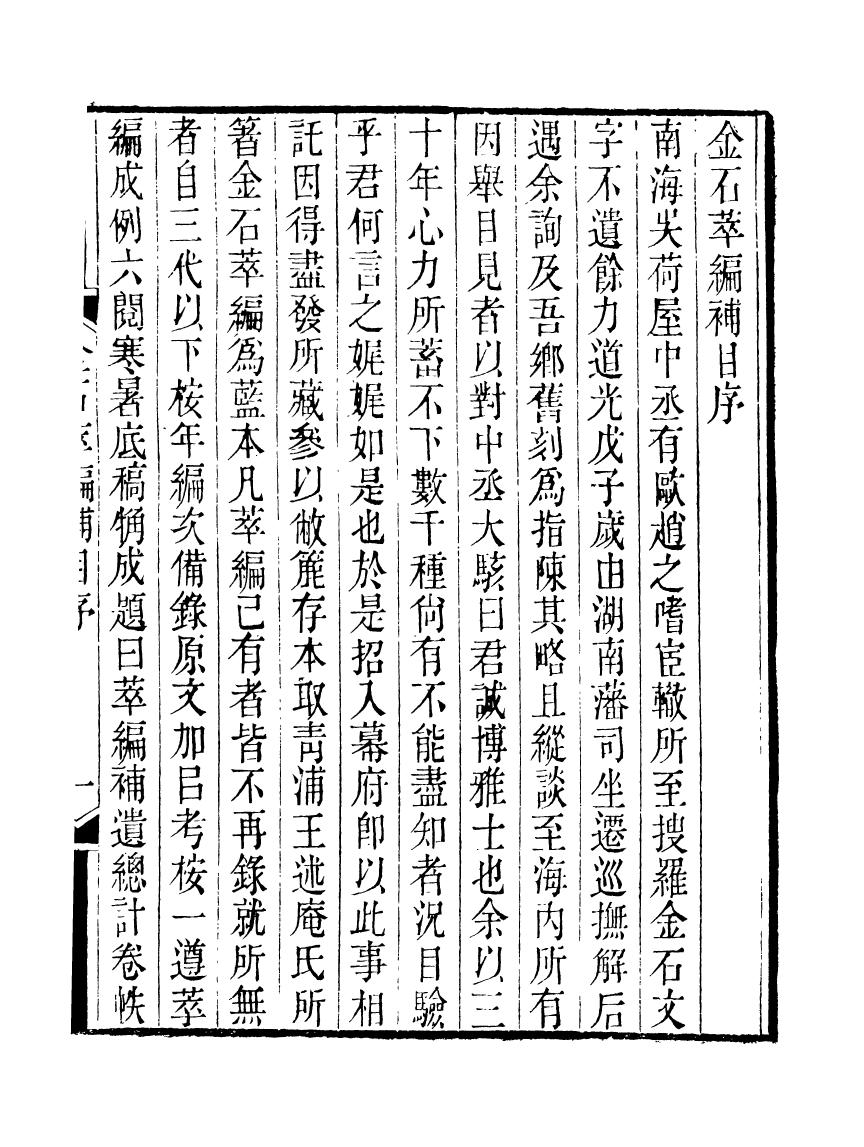 金石萃編補目序
南海吴荷屋中丞有歐趙之嗜宦轍所至搜羅金石文
字不遺餘力道光戊子歲由湖南藩司坐遷巡撫解后
遇余詢及吾鄉舊刻爲指陳其略且縱談至海内所有
因舉目見者以對中丞大駭曰君誠博雅士也余以三
十年心力所蓄不下數千種尙有不能盡知者況目驗
乎君何言之娓娓如是也於是招入幕府卽以此事相
託因得盡發所藏參以敝簏存本取靑浦王述庵氏所
箸金石萃編爲藍本凡萃編已有者皆不再錄就所無
者自三代以下桉年編次備錄原文加㠯考桉一遵萃
編成例六閱寒暑底稿觕成題曰萃編補遺總計卷帙
金石萃編補目序
一